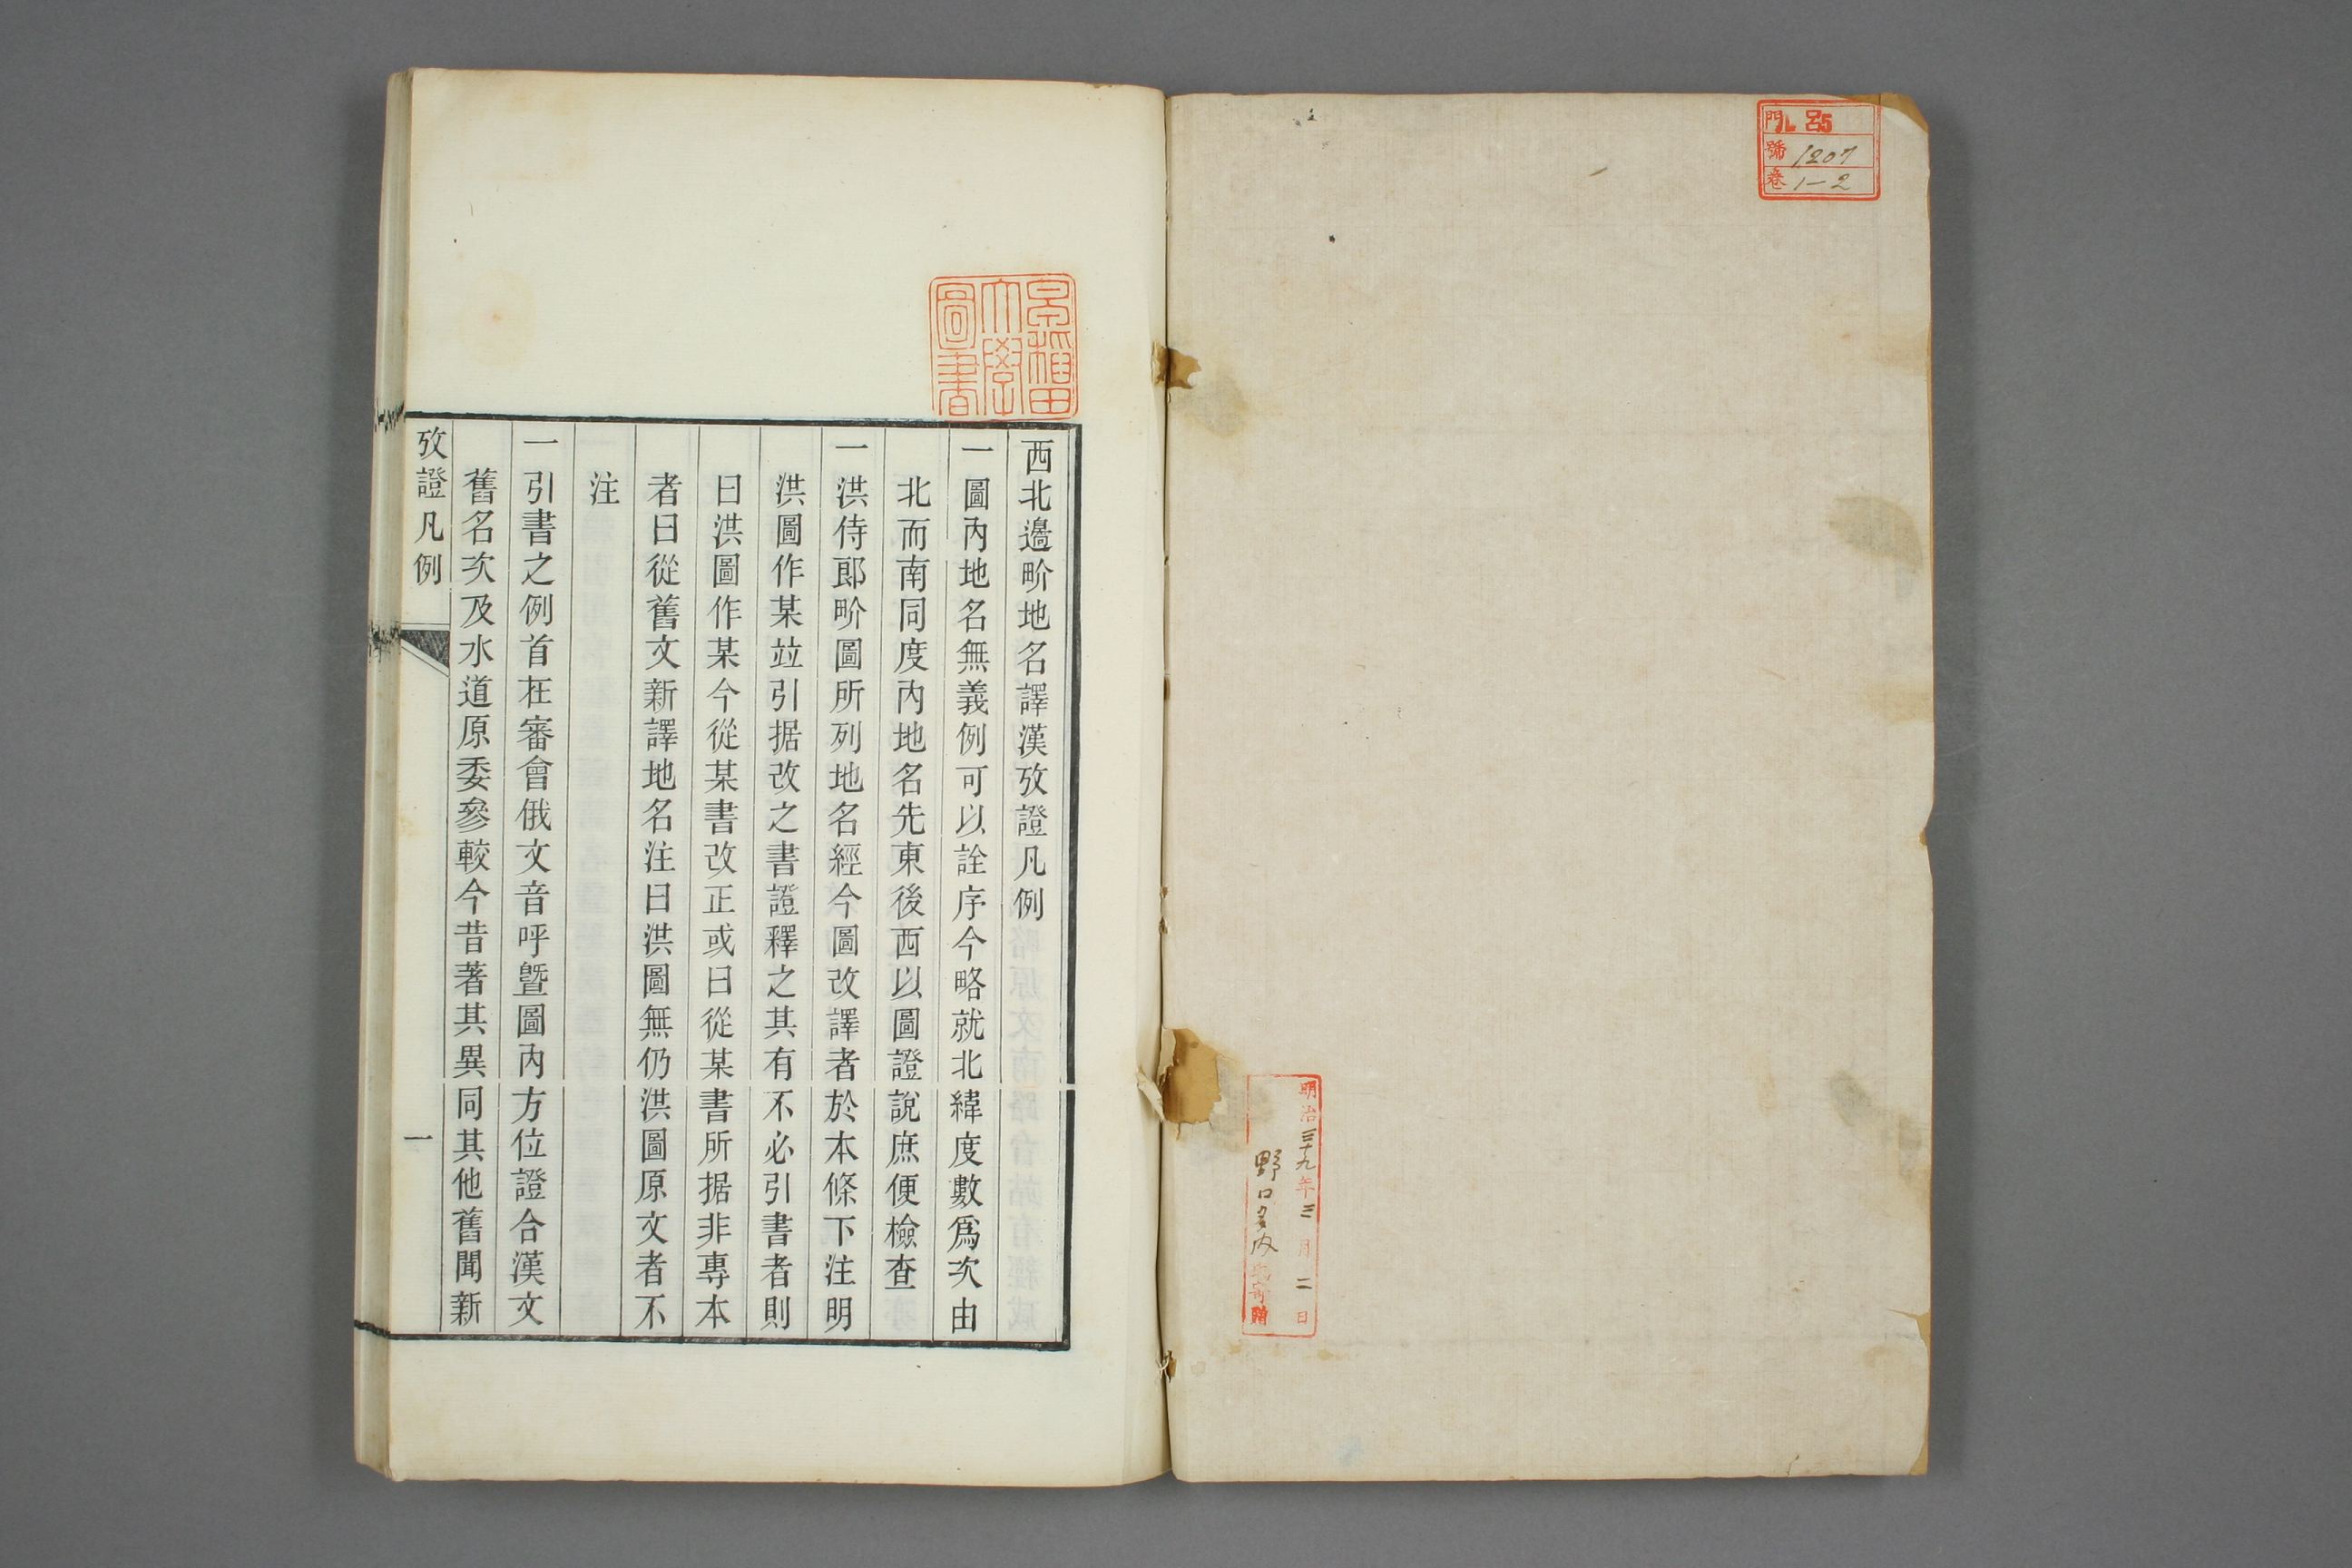 門 ル 呂5
號 1207
卷 1-2
明治三十九年三月二日
野口多内氏寄贈
早稲田大學圖書
西北邊畍地名譯漢攷證凡例
一圖內地名無義例可以詮序今略就北緯度數爲次由
北而南同度內地名先東後西以圖證說庶便檢查
一洪侍郎畍圖所列地名經今圖改譯者於本條下注明
洪圖作某竝引据改之書證釋之其有不必引書者則
曰洪圖作某今從某書改正或曰從某書所据非專本
者曰從舊文新譯地名注曰洪圖無仍洪圖原文者不
注
一引書之例首在審會俄文音呼曁圖內方位證合漢文
舊名次及水道原委參較今昔著其異同其他舊聞新
攷證凡例
一